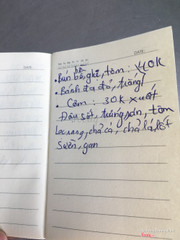 • Bún bề bề, ghẹ, tôm: 40K
• Bánh đa đỏ, trắng
• Cơm: 30K xuất
Đậu sốt, trứng rán, tôm
lạc rang, chả cá, chả lá lốt
Sườn, gan